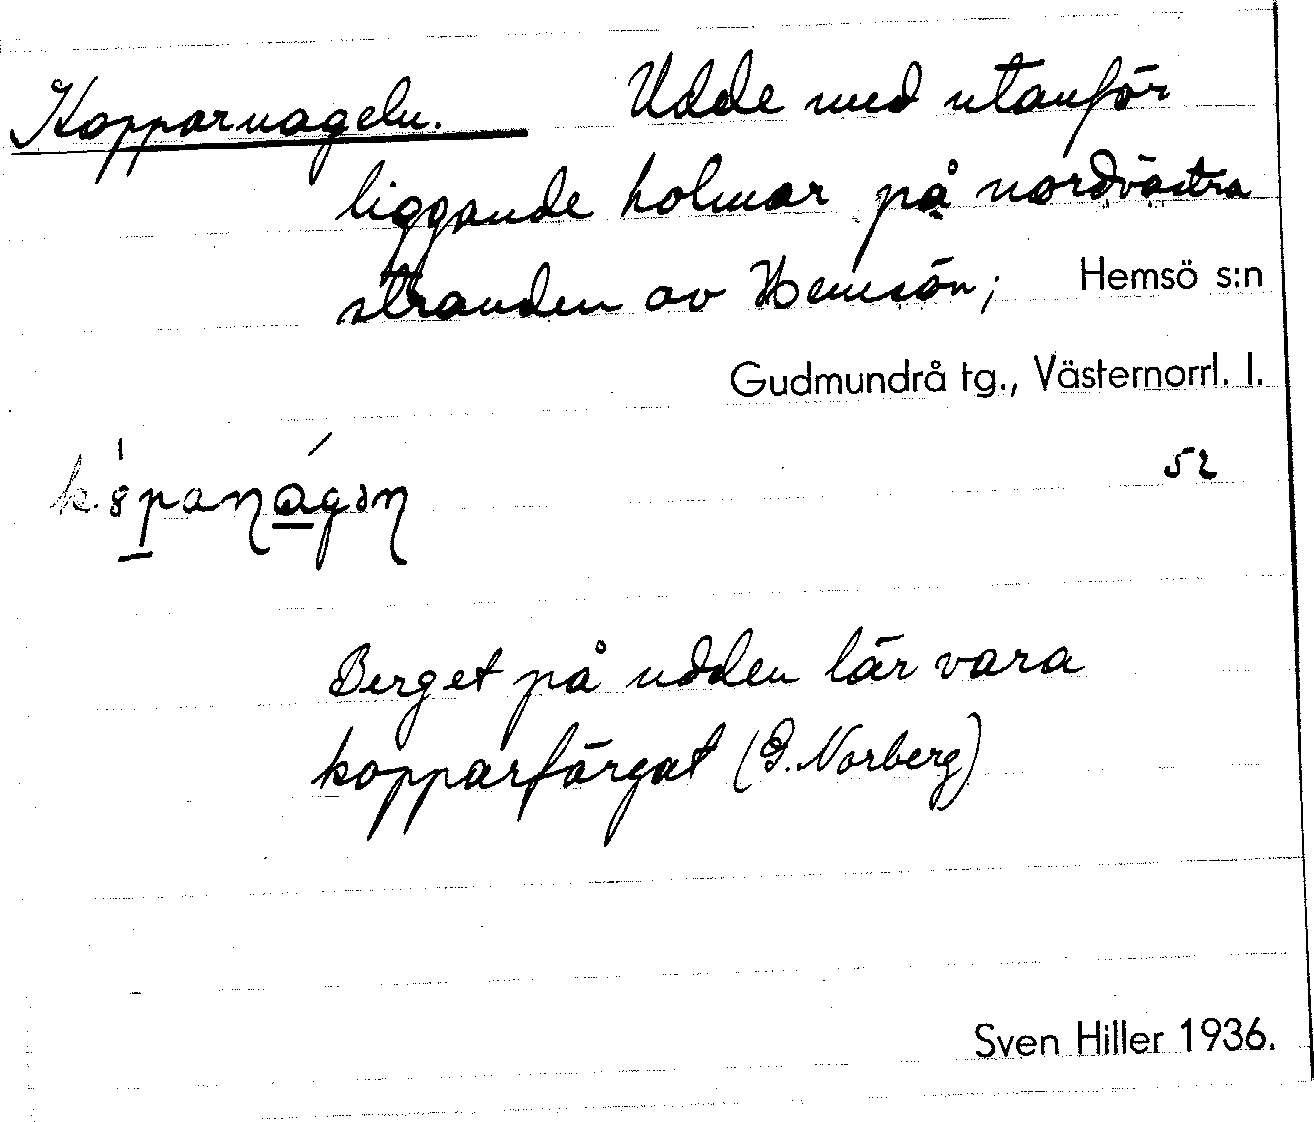 Kopparnageln. Udde med utanför
liggande holmar på nordvästra
stranden av Hemsön; Hemsö s:n
Gudmundrå tg., Västernorrl. l.
52
Berget på udden lär vara
kopparfärgat (G. Norberg)
Sven Hiller 1936.